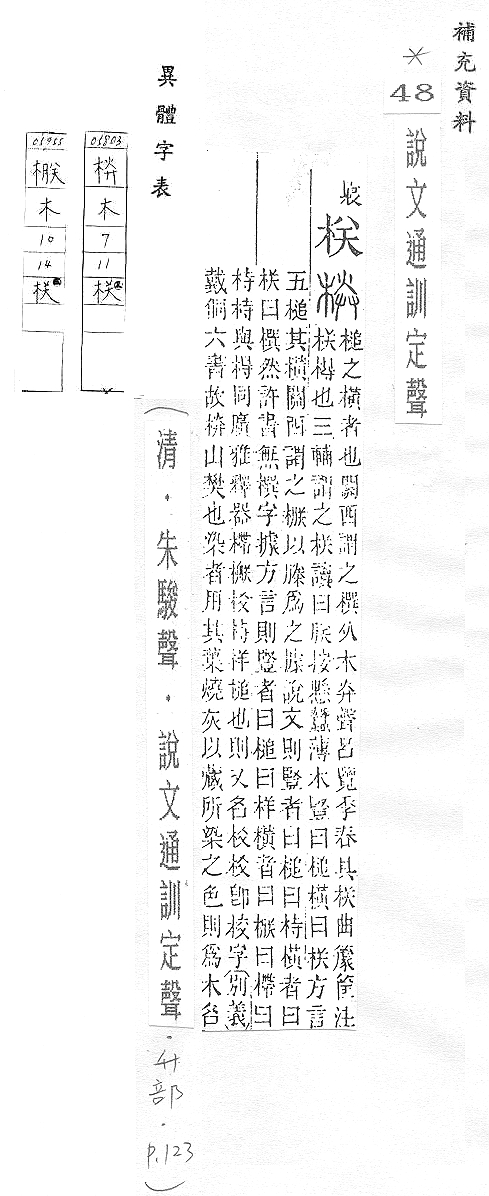 補充資料
* 48 說文通訓定聲
栚 槌之橫者也關西謂之㯢从木灷聲呂覽季春具栚曲籧筐注
栚梮也三輔謂之栚讀曰朕按懸蠶薄木豎曰槌橫曰栚方言
五槌其橫關西謂之㮳以縢爲之據說文則豎者曰槌曰㭙橫者曰
栚曰㯢然許書無㯢字據方言則豎者曰槌曰样橫者曰㮳曰㯂曰
㭙㭙與㭙同廣雅釋器㯂㮳校㭙样槌也則又名校校卽校字(別義)
戴侗六書故栚山礬也染者用其葉燒灰以藏所染之色則爲木名
異體字表
05803
栚
木
7
11
栚
05955
㮳
木
10
14
栚
(清・朱駿聲・說文通訓定聲・升部・P.123)